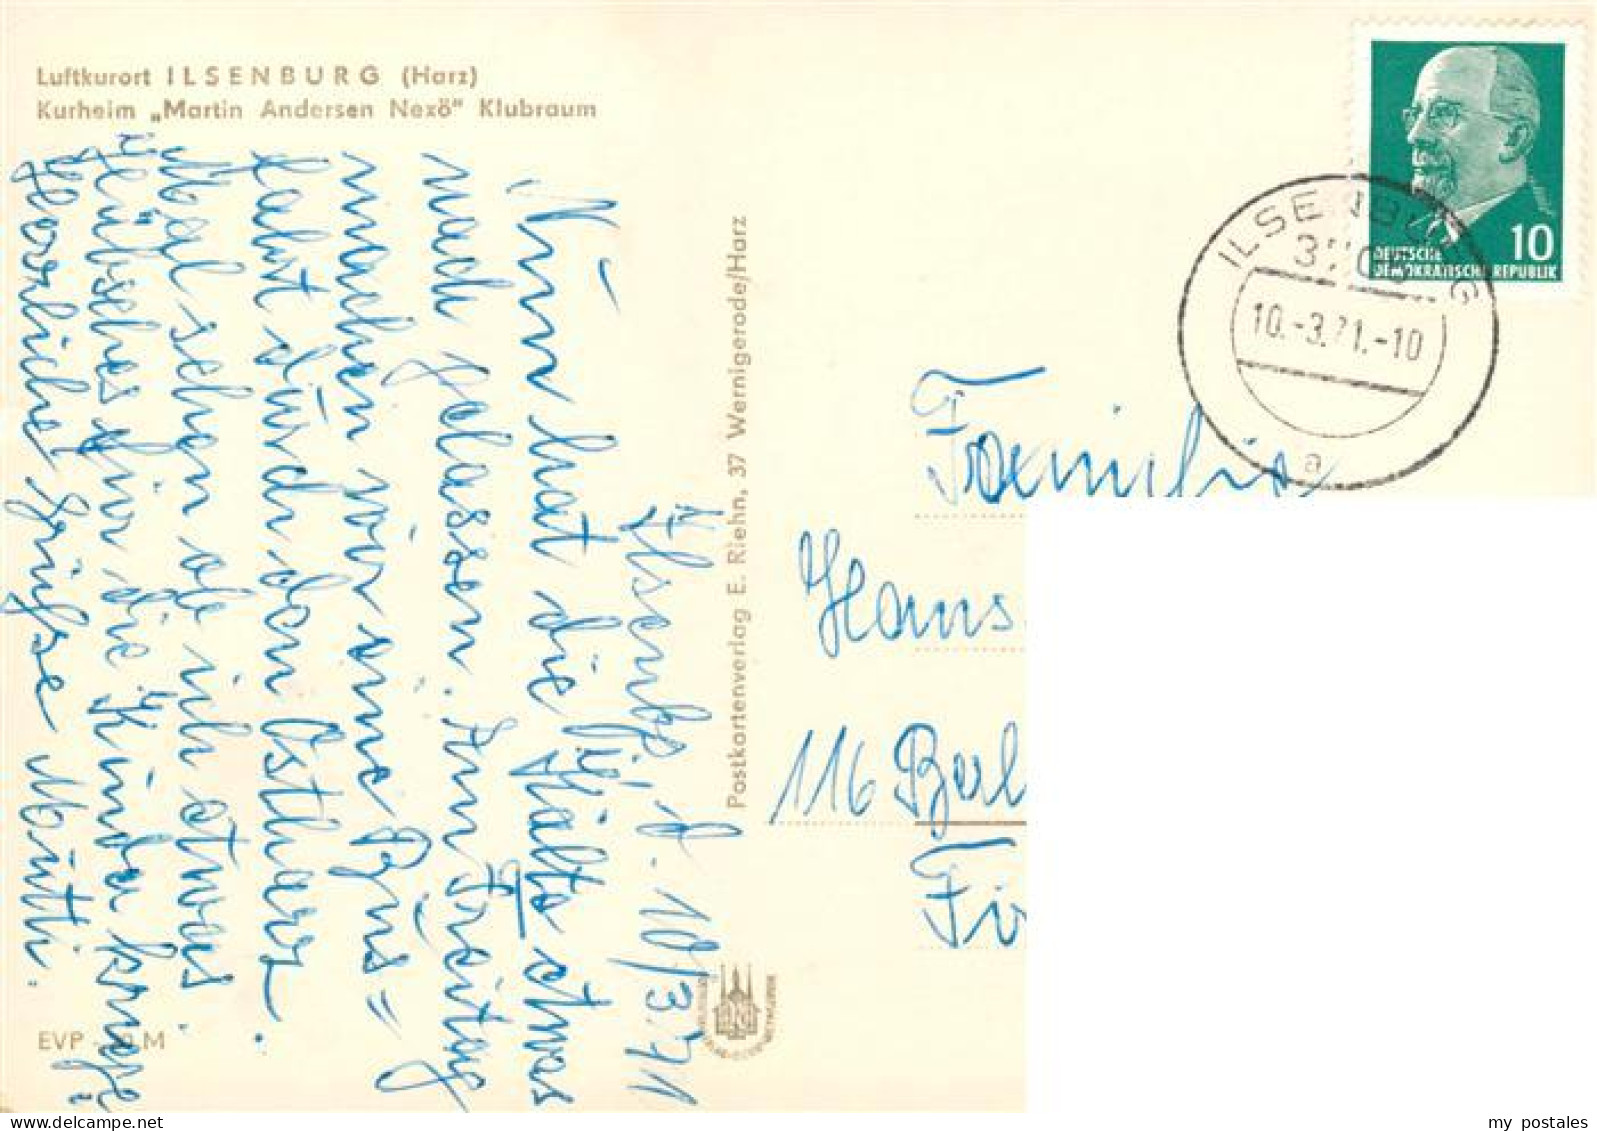 Luftkurort ILSENBURG (Harz)
Kurheim „Martin Andersen Nexö" Klubraum
Ilsenbg, d. 10/3.71
Nun hat die Kälte etwas
nach gelassen. Am Freitag
machen wir eine Bus=
fahrt durch den Ostharz.
Mal sehen ob ich etwas
Hübsches für die Kinder kriege.
Herzliche Grüße Mutti.
EVP M
Postkartenverlag E. Riehn, 37 Wernigerode/Harz
DEUTSCHE
DEMOKRATISCHE REPUBLIK
10
ILSENBURG
10.-3.71.-10
a
Familie
Hans
116 Berl
my_postales